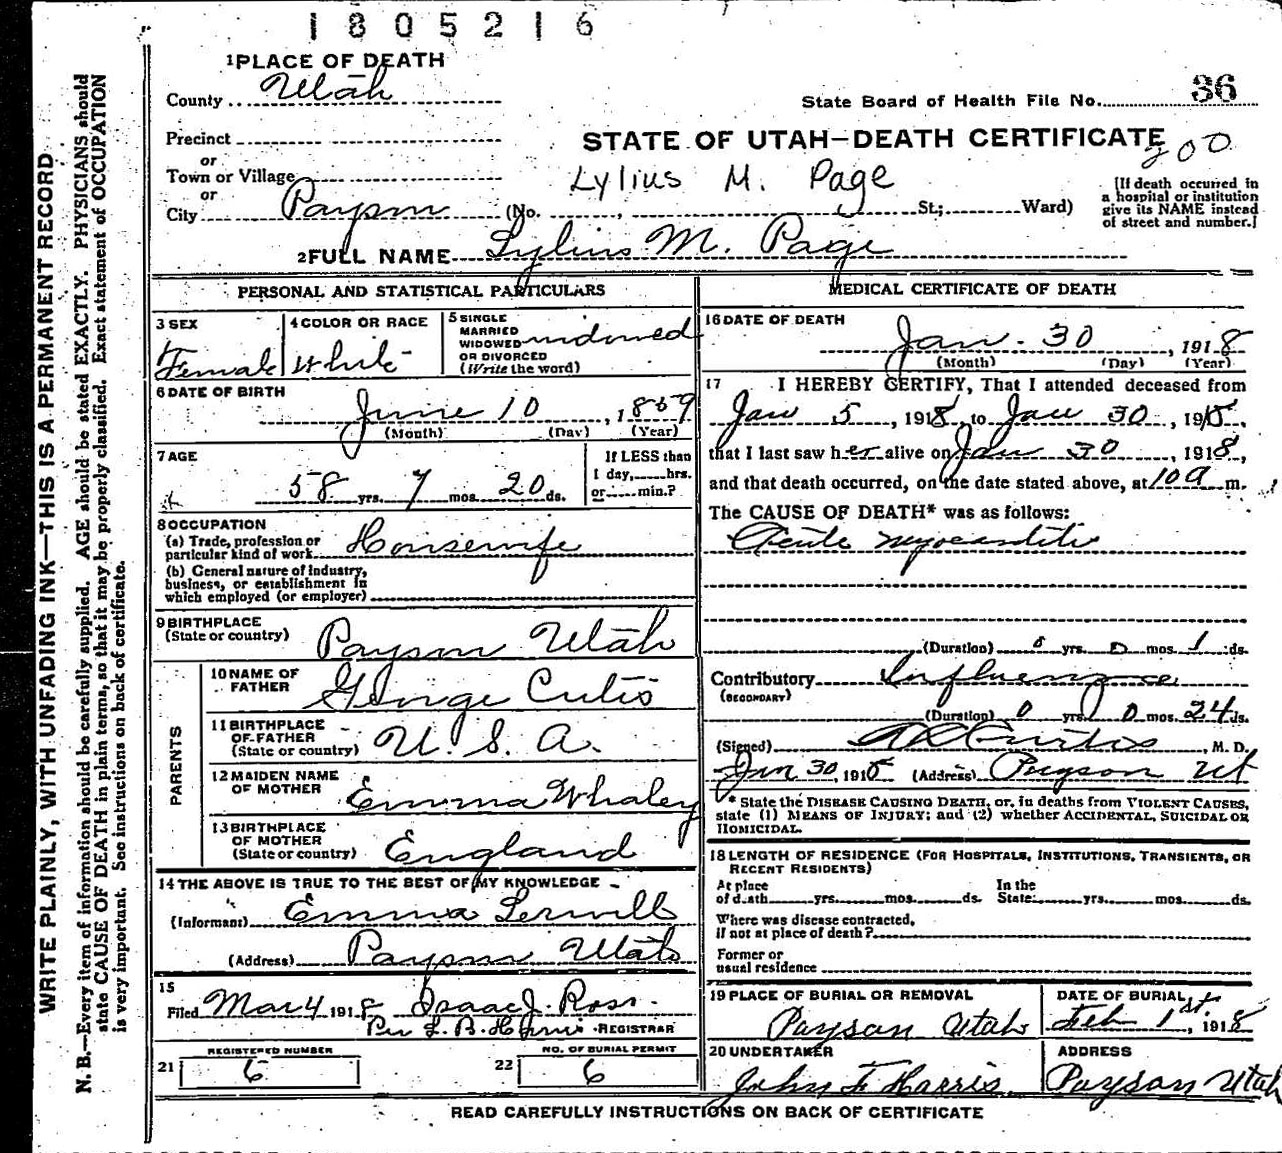 1805216
1 PLACE OF DEATH
County Utah
State Board of Health File No. 36
Precinct
STATE OF UTAH—DEATH CERTIFICATE
200
or
Town or Village
Lylius M. Page
or
City Payson (No. , St; Ward)
[If death occurred in a hospital or institution give its NAME instead of street and number.]
2 FULL NAME Lylius M. Page
PERSONAL AND STATISTICAL PARTICULARS
3 SEX
Female
4 COLOR OR RACE
White
5 SINGLE
MARRIED
WIDOWED
OR DIVORCED
(Write the word)
widowed
6 DATE OF BIRTH
June 10, 1859
(Month) (Day) (Year)
7 AGE
58 yrs. 7 mos. 20 ds.
If LESS than
1 day, hrs.
or min.?
8 OCCUPATION
(a) Trade, profession or
particular kind of work Housewife
(b) General nature of industry,
business, or establishment in
which employed (or employer)
9 BIRTHPLACE
(State or country) Payson Utah
PARENTS
10 NAME OF
FATHER George Cutis
11 BIRTHPLACE
OF FATHER
(State or country) U. S. A.
12 MAIDEN NAME
OF MOTHER Emma Whaley
13 BIRTHPLACE
OF MOTHER
(State or country) England
14 THE ABOVE IS TRUE TO THE BEST OF MY KNOWLEDGE
(Informant) Emma
(Address) Payson Utah
15
Filed Mar 4 1918 Isaac J. Ross.
Per REGISTRAR
21 REGISTERED NUMBER
6
22 NO. OF BURIAL PERMIT
6
MEDICAL CERTIFICATE OF DEATH
16 DATE OF DEATH
Jan. 30, 1918
(Month) (Day) (Year)
17 I HEREBY CERTIFY, That I attended deceased from
Jan 5, 1918, to Jan 30, 1918,
that I last saw her alive on Jan 30, 1918,
and that death occurred, on the date stated above, at 10 a m.
The CAUSE OF DEATH* was as follows:
Acute myocarditis
(Duration) 0 yrs. 0 mos. 1 ds.
Contributory Influenza
(SECONDARY)
(Duration) 0 yrs. 0 mos. 24 ds.
(Signed) Curtis, M. D.
Jan 30, 1918 (Address) Payson Ut
* State the DISEASE CAUSING DEATH, or, in deaths from VIOLENT CAUSES,
state (1) MEANS OF INJURY; and (2) whether ACCIDENTAL, SUICIDAL OR
HOMICIDAL.
18 LENGTH OF RESIDENCE (FOR HOSPITALS, INSTITUTIONS, TRANSIENTS, OR
RECENT RESIDENTS)
At place
of death yrs. mos. ds.
In the
State yrs. mos. ds.
Where was disease contracted,
if not at place of death?
Former or
usual residence
19 PLACE OF BURIAL OR REMOVAL
Payson Utah
DATE OF BURIAL
Feb 1st, 1918
20 UNDERTAKER
John F Harris.
ADDRESS
Payson Utah
READ CAREFULLY INSTRUCTIONS ON BACK OF CERTIFICATE
WRITE PLAINLY, WITH UNFADING INK—THIS IS A PERMANENT RECORD
N. B.—Every item of information should be carefully supplied. AGE should be stated EXACTLY. PHYSICIANS should
state CAUSE OF DEATH in plain terms, so that it may be properly classified. Exact statement of OCCUPATION
is very important. See instructions on back of certificate.